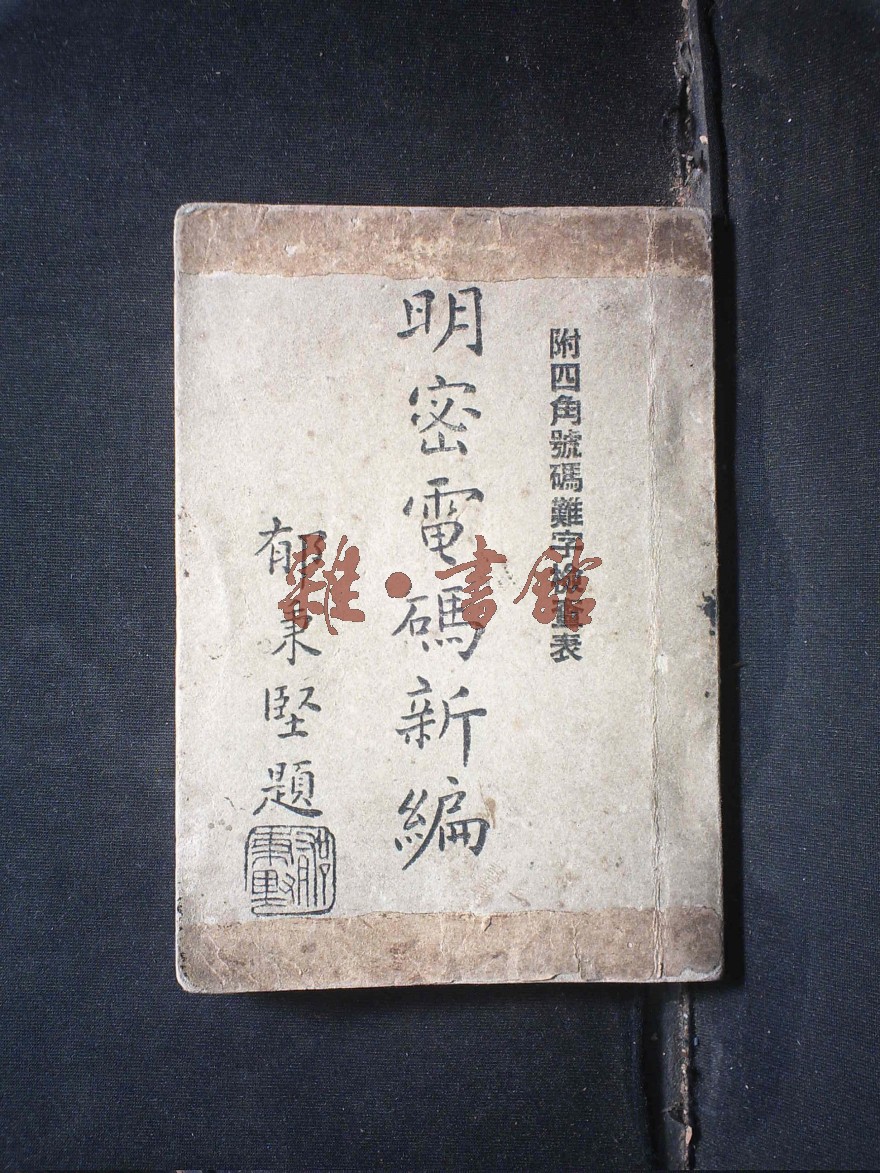 附四角號碼難字檢查表
明密電碼新編
郁秉堅題
雜·書館